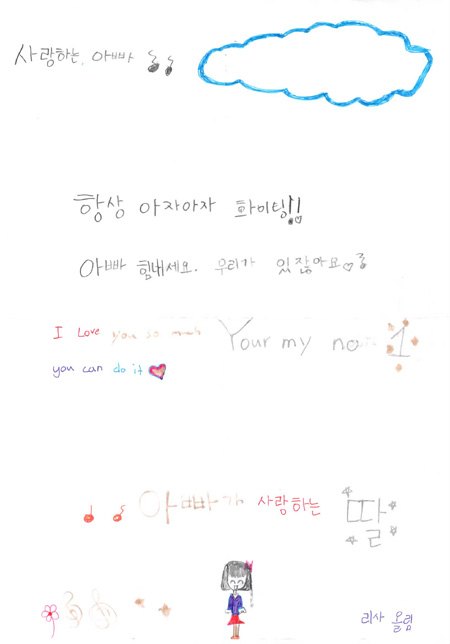 사랑하는, 아빠
항상 아자아자 화이팅!!
아빠 힘내세요. 우리가 있잖아요♡
I Love you so much Your my no 1
you can do it
아빠가 사랑하는 딸
리사 올림